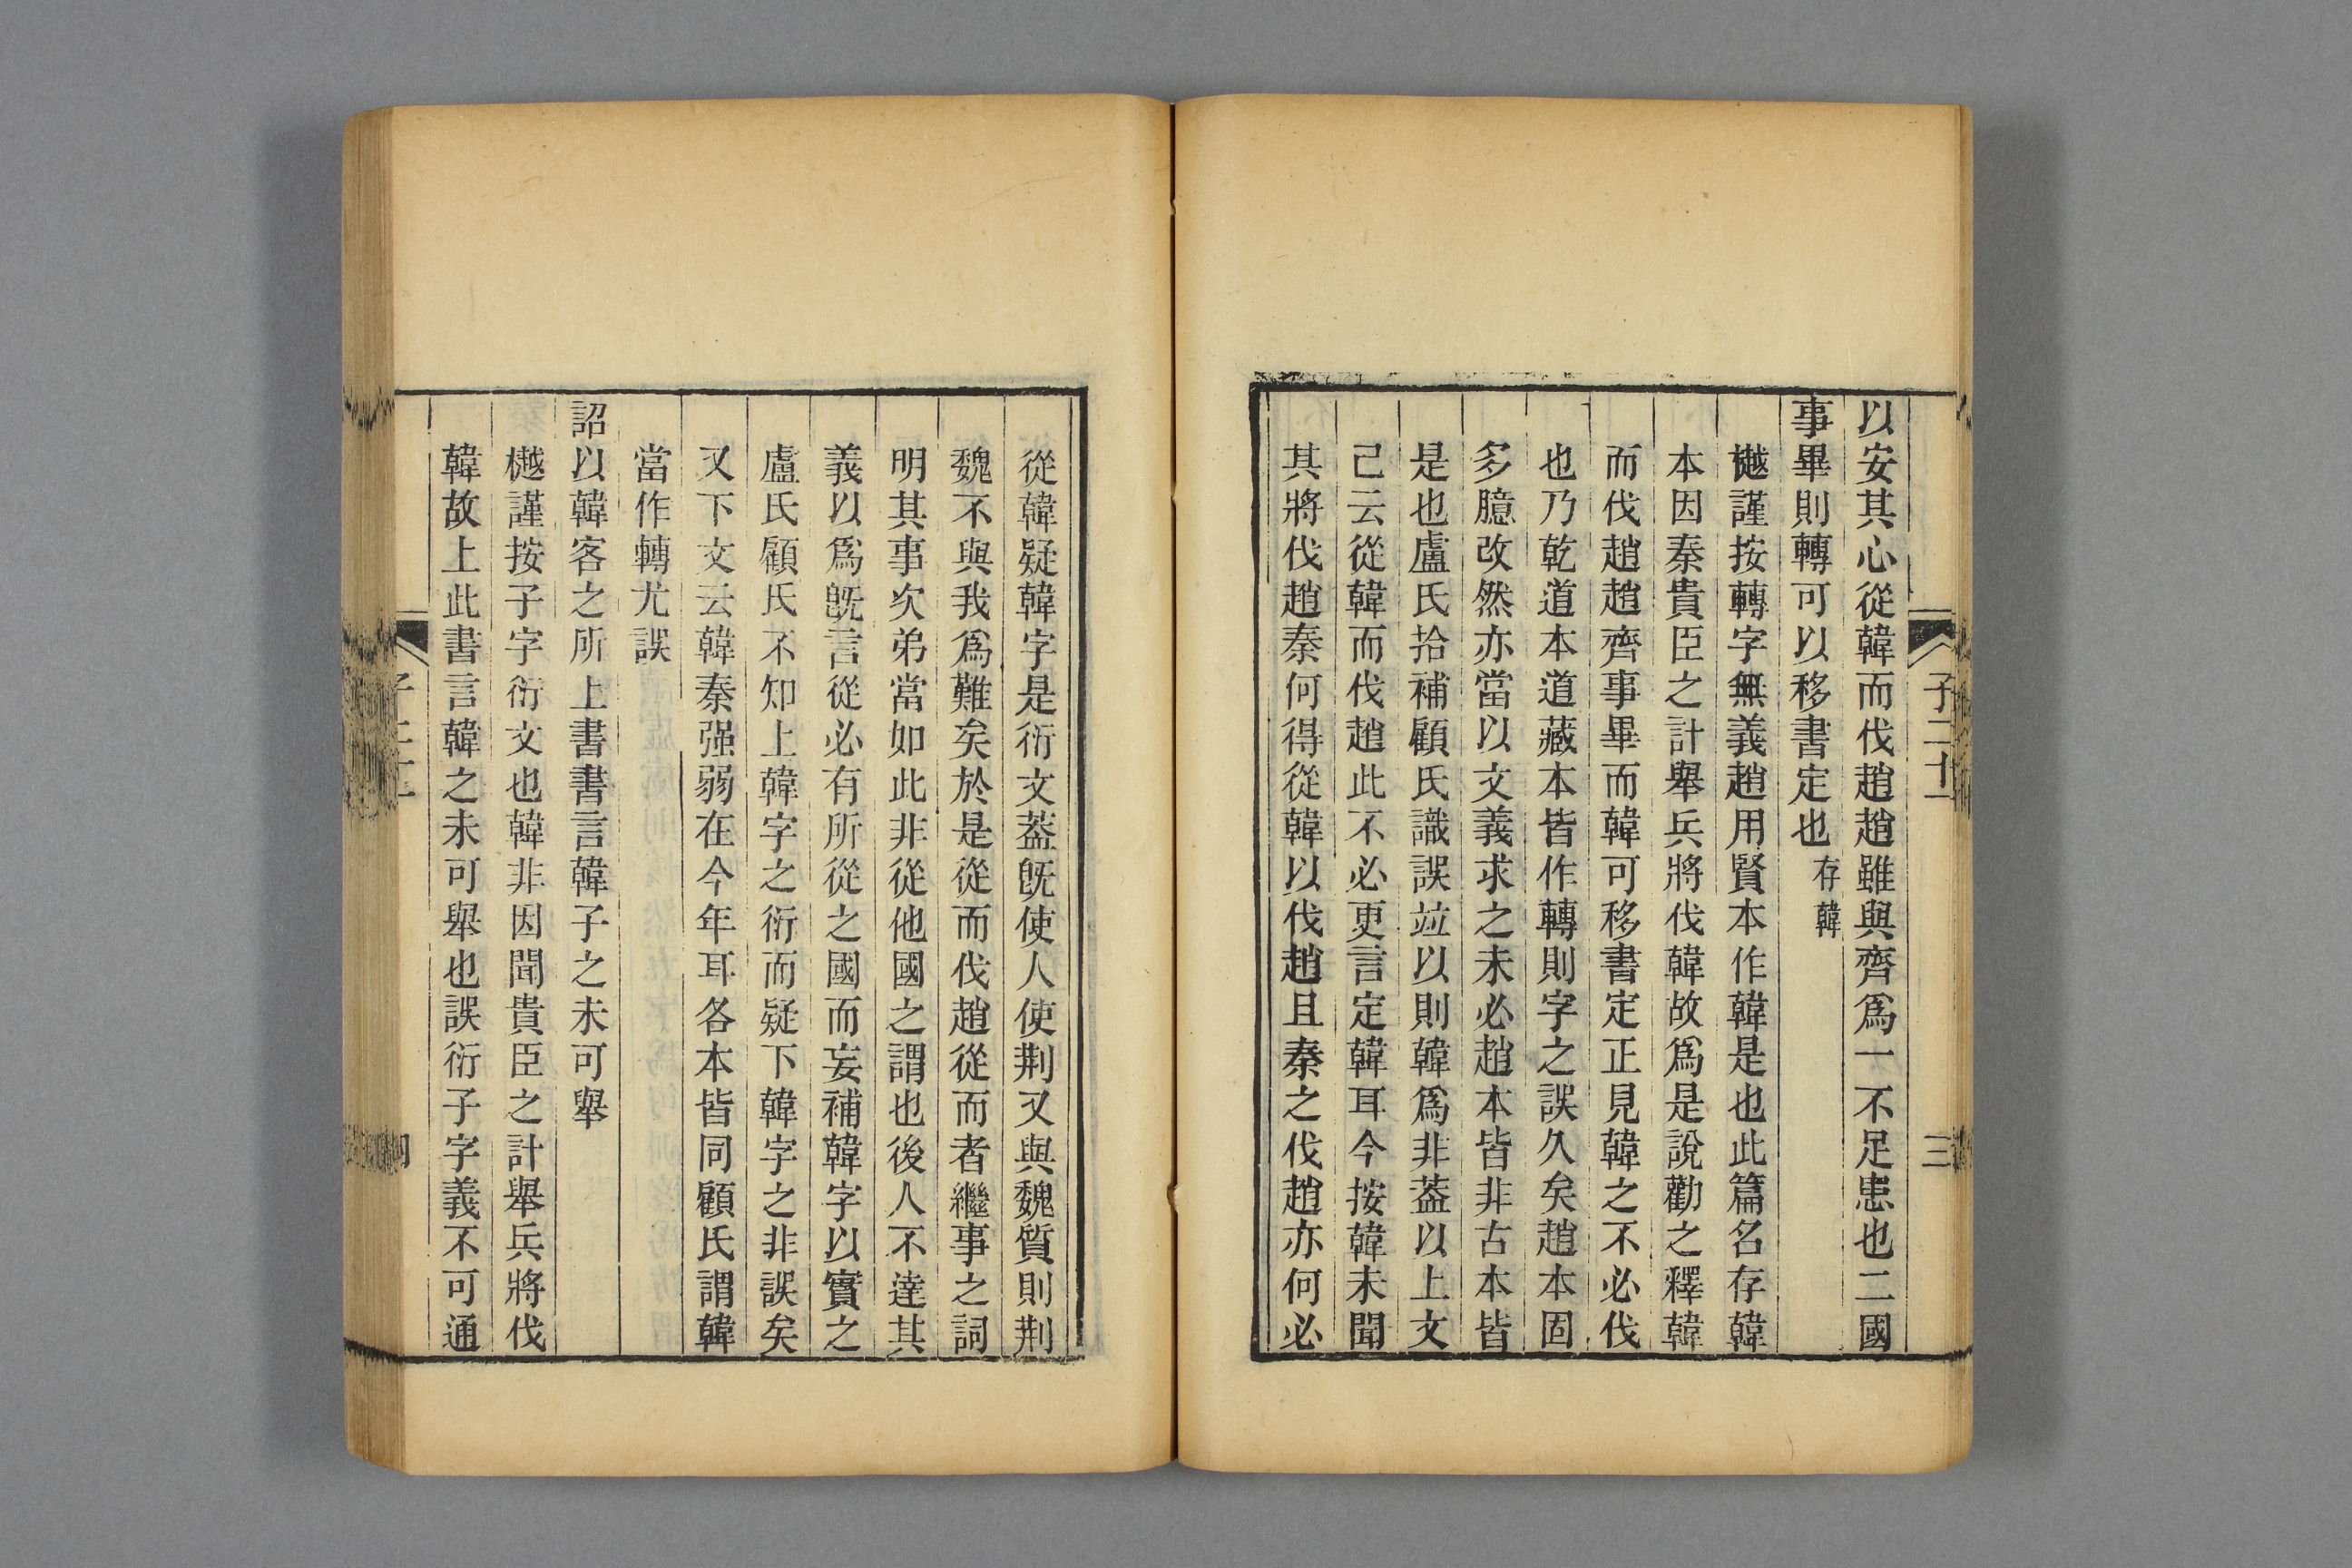 子二十一
三
以安其心從韓而伐趙趙雖與齊爲一不足患也二國
事畢則轉可以移書定也存韓
樾謹按轉字無義趙用賢本作韓是也此篇名存韓
本因秦貴臣之計舉兵將伐韓故爲是說勸之釋韓
而伐趙趙齊事畢而韓可移書定正見韓之不必伐
也乃乾道本道藏本皆作轉則字之誤久矣趙本固
多臆改然亦當以文義求之未必趙本皆非古本皆
是也盧氏拾補顧氏識誤竝以則韓爲非葢以上文
己云從韓而伐趙此不必更言定韓耳今按韓未聞
其將伐趙秦何得從韓以伐趙且秦之伐趙亦何必
從韓疑韓字是衍文葢旣使人使荆又與魏質則荆
魏不與我爲難矣於是從而伐趙從而者繼事之詞
明其事次弟當如此非從他國之謂也後人不達其
義以爲旣言從必有所從之國而妄補韓字以實之
盧氏顧氏不知上韓字之衍而疑下韓字之非誤矣
又下文云韓秦强弱在今年耳各本皆同顧氏謂韓
當作轉尤誤
詔以韓客之所上書書言韓子之未可舉
樾謹按子字衍文也韓非因聞貴臣之計舉兵將伐
韓故上此書言韓之未可舉也誤衍子字義不可通